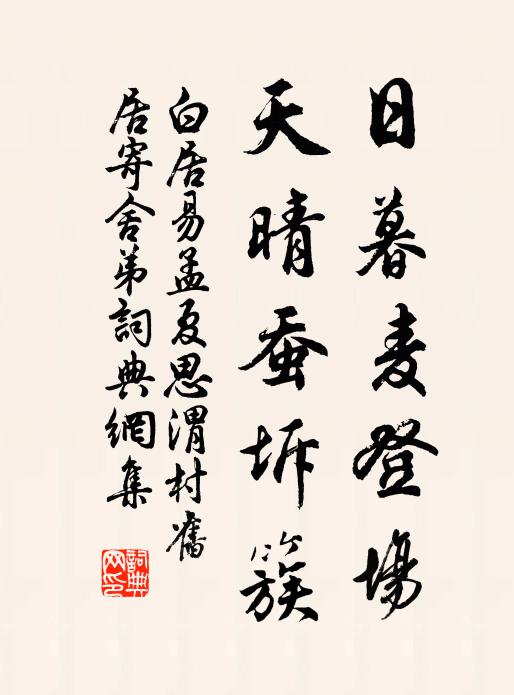 日暮麦登場
天晴蚕坼簇
白居易孟夏思渭村舊
居寄舍弟詞典網集
詞典网印